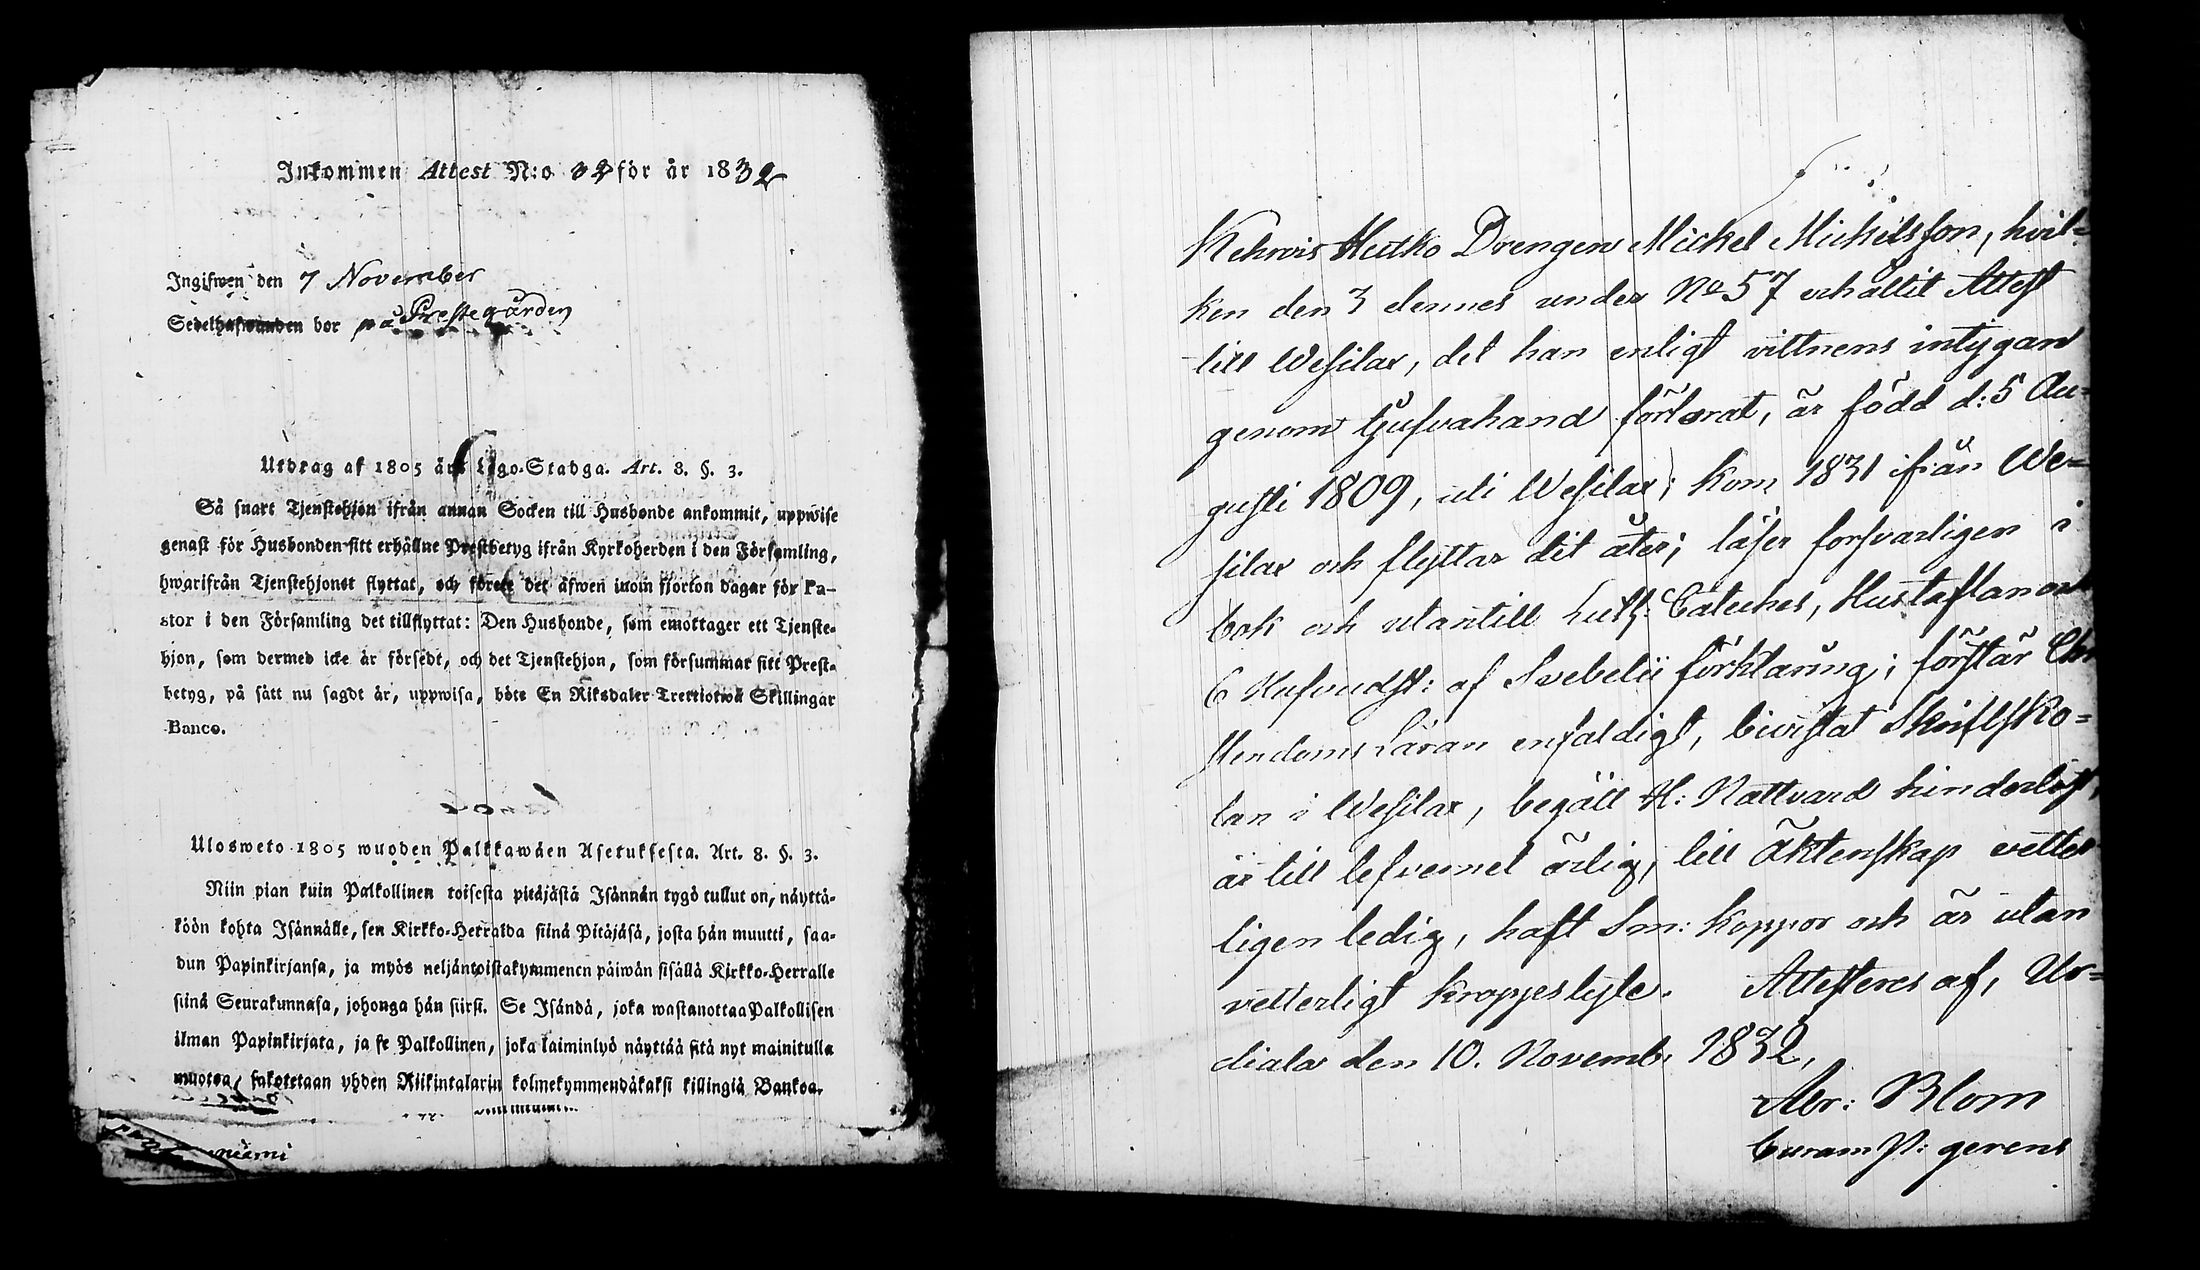 Inkommen Attest N:o 32 för år 1832
Ingifwen den 7 November
Sedelhafwanden bor på Prestegården
Utdrag af 1805 års Lego-Stadga. Art. 8. §. 3.
Så snart Tjenstehjon ifrån annan Socken till Husbonde ankommit, uppwise
genast för Husbonden sitt erhållne Prestbetyg ifrån Kyrkoherden i den Församling,
hwarifrån Tjenstehjonet flyttat, och förete det äfwen inom fjorton dagar för Pa-
stor i den Församling det tillflyttat: Den Husbonde, som emottager ett Tjenste-
hjon, som dermed icke är försedt, och det Tjenstehjon, som försummar sitt Prest-
betyg, på sätt nu sagdt är, uppwisa, böte En Riksdaler Trettiotwå Skillingar
Banco.
Ulosweto 1805 wuoden Palkkawäen Asetuksesta. Art. 8. §. 3.
Niin pian kuin Palkollinen toisesta pitäjästä Isännän tygö tullut on, näyttä-
köön kohta Isännälle, sen Kirkko-Herralda siinä Pitäjäsä, josta hän muutti, saa-
dun Papinkirjansa, ja myös neljäntoistakymmenen päiwän sisällä Kirkko-Herralle
siinä Seurakunnasa, johonga hän siirsi. Se Isändä, joka wastanottaa Palkollisen
ilman Papinkirjata, ja se Palkollinen, joka laiminlyö näyttää sitä nyt mainitulla
muotoa, sakotetaan yhden Riikintalarin kolmekymmendäkaksi killingiä Bankoa.
niemi
Kehrois Hutko Drengen Mickel Mickelsson, hvil-
ken den 3 dennes under No 57 erhållit Attest
till Wesilax, det han enligt vittnens intygan
genom tjufvahand förlorat, är född d: 5 Au-
gusti 1809, uti Wesilax; kom 1831 ifrån We-
silax och flyttar dit åter; läser forsvarligen i
bok och utantill Luth: Cateches, Hustaflan och
6 Hufvudst: af Svebelii förklaring; förstår Chri
stendoms Läran enfaldigt, bivistat Skriftsko-
lan i Wesilax, begått H: Nattvard hinderlöst,
är till lefvernet ärlig, till äktenskap vetter
ligen ledig, haft Sm: koppor och är utan
vetterligt kroppslyte. Attesteres af, Ur-
diala den 10. Novemb: 1832,
Abr: Blom
Curam P: gerens